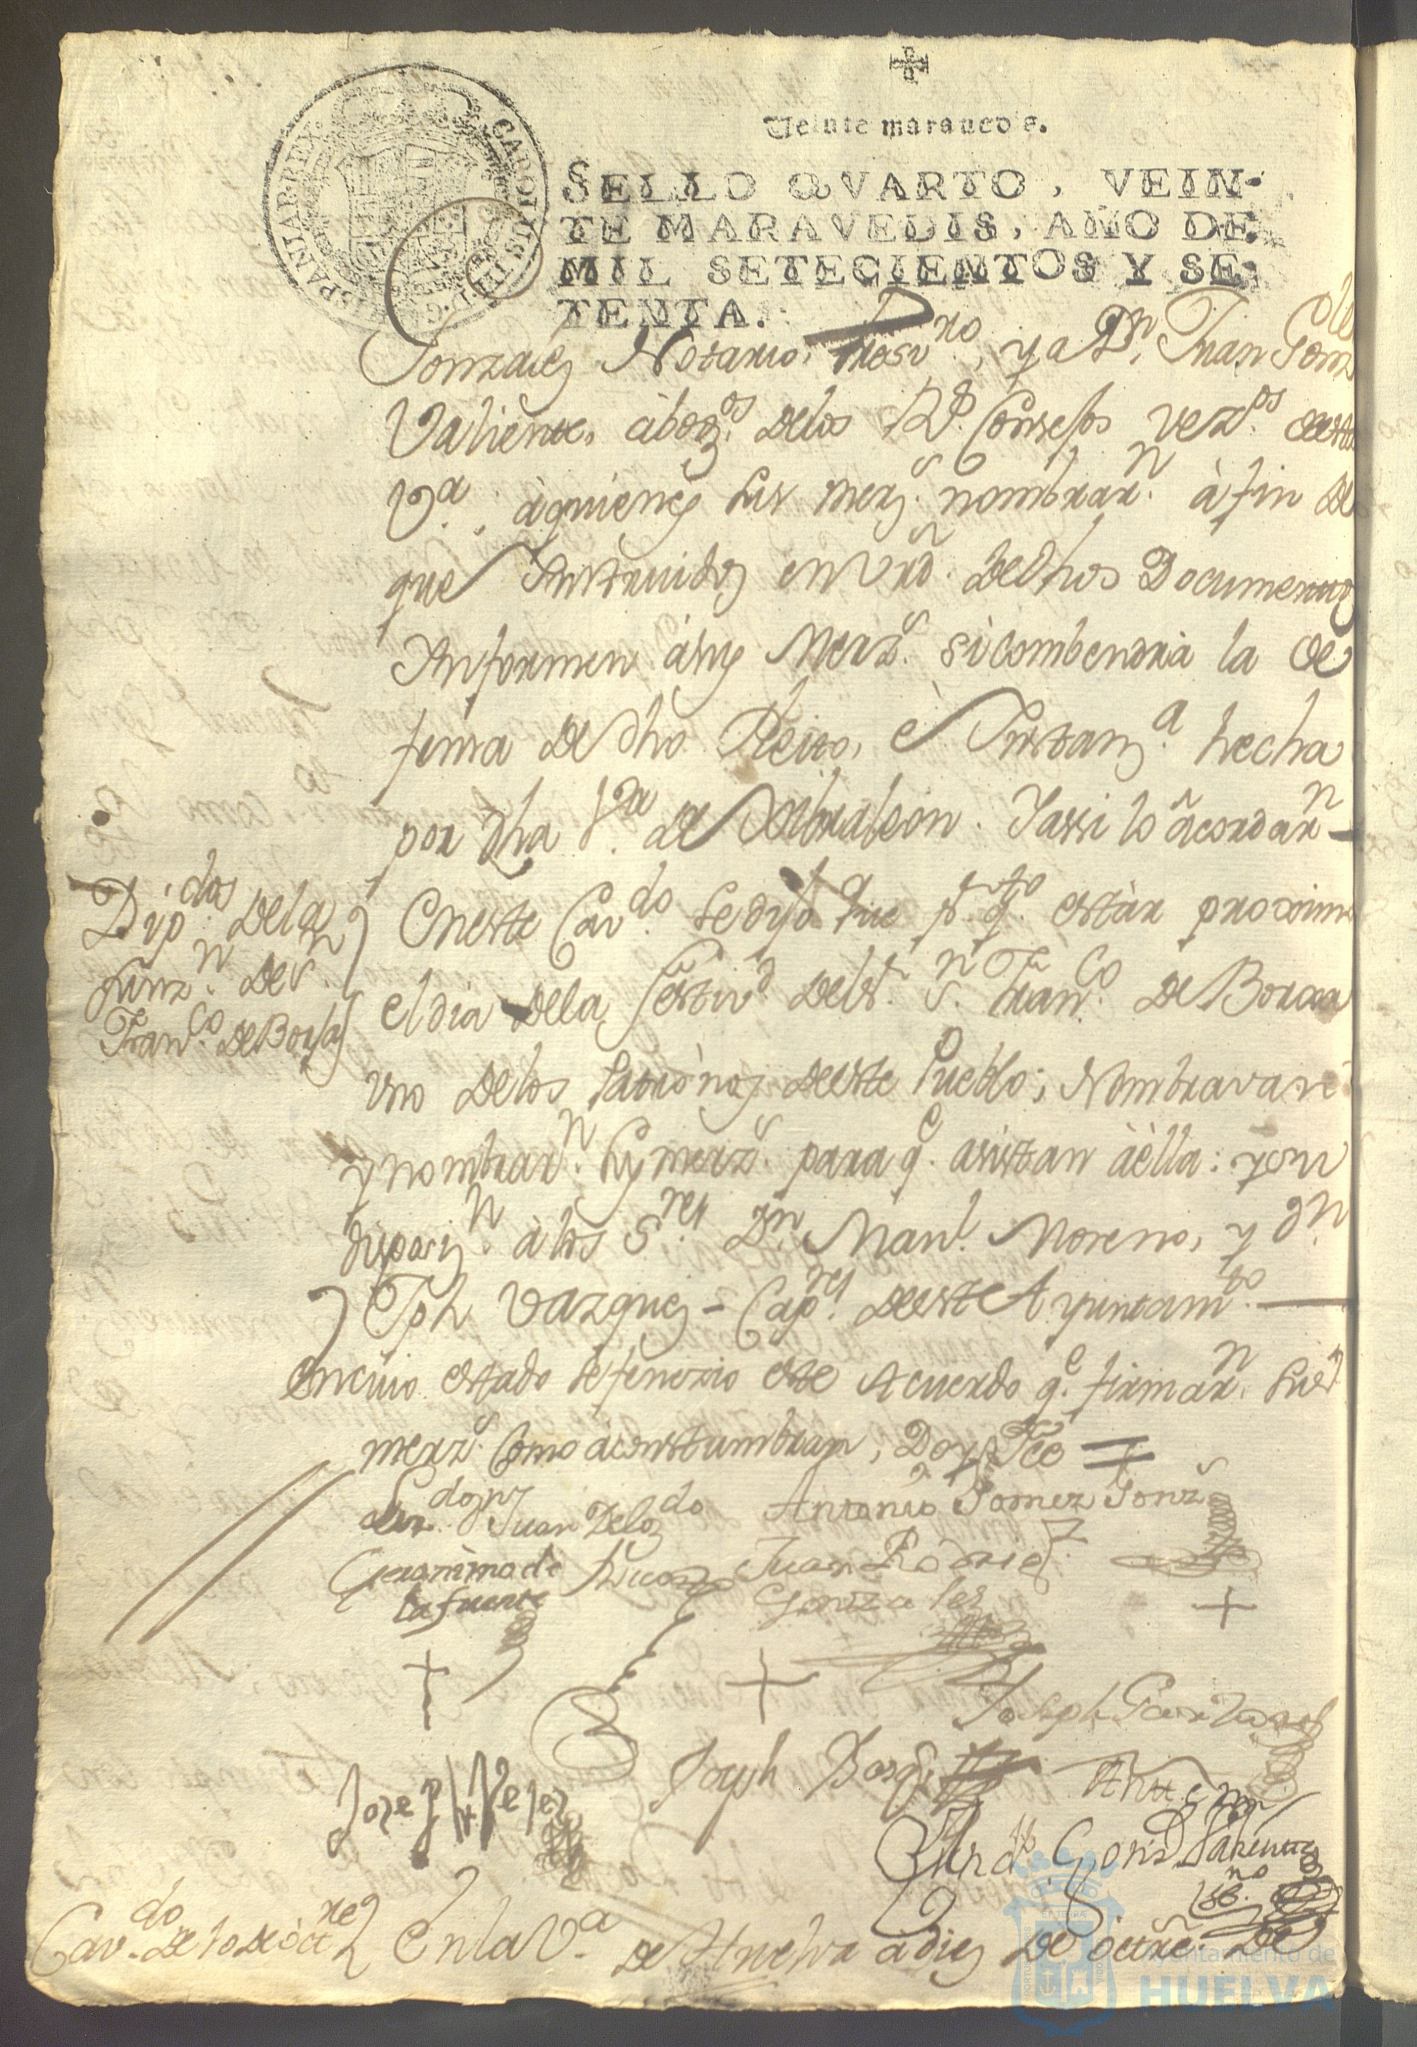 Veinte maravedis.
SELLO QVARTO, VEIN-
TE MARAVEDIS, AÑO DE
MIL SETECIENTOS Y SE-
TENTA.
CAROLUS III D G HISPANIAR REX
Gonzales Notario, Presvro, y a Dn Juan Gonz
Valiente, abogos delos Rs Consejos vezos deesta
Va. àquienes sus merzs. nombraron à fin de
que Instruidos en vrd. dedhos Documentos
Informen à sus Merzs. si combendrà la de
fensa de dho Pleito, è Instanza hecha
por dha Va de Gibraleon. Y assi lo acordarn
Dipdos dela
funzn. de Sn.
Franco de Borja
Eneste Cavdo se dijo que pr. qto estàr proximo
el dia dela festivd del Sr. Sn. Franco de Borja
uno delos Patrònos deeste Pueblo; Nombravan
y nombrarn. sus merzs. para qe. asistan àèlla: y en su
disposizn. à los Sres Dn. Manl. Moreno, y dn
Jph Vazques - Capres deeste Ayuntamto.
en cuio estado sefenezio este Acuerdo qe. firmarn. sus
merzs. como acostumbran, Doy fee =
Juan Delgdo
Geronimo de
la fuente
Antonio Gomez Gonzs
Juan Rodrigz
Gonzales
Joseph Garcia
Joseph Borg
Jozeph Vejez
Ante my
Gonz Valiente
sno
Cavdo de 10 de octre
En la Va de Huelva a diez de octre. de
Ayuntamiento de
HUELVA